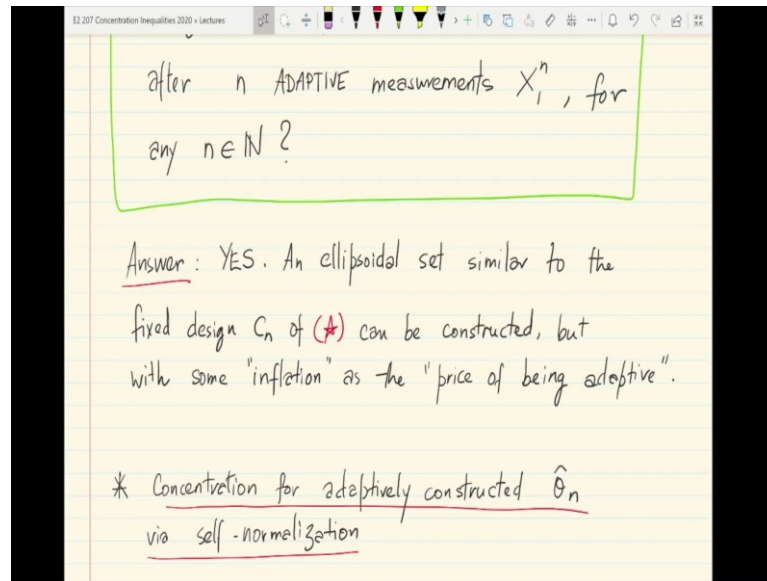 E2 207 Concentration Inequalities 2020 » Lectures
after n ADAPTIVE measurements X₁ⁿ, for
any n ∈ ℕ ?
Answer : YES. An ellipsoidal set similar to the
fixed design Cₙ of (☆) can be constructed, but
with some "inflation" as the "price of being adaptive".
* Concentration for adaptively constructed θ̂ₙ
via self-normalization